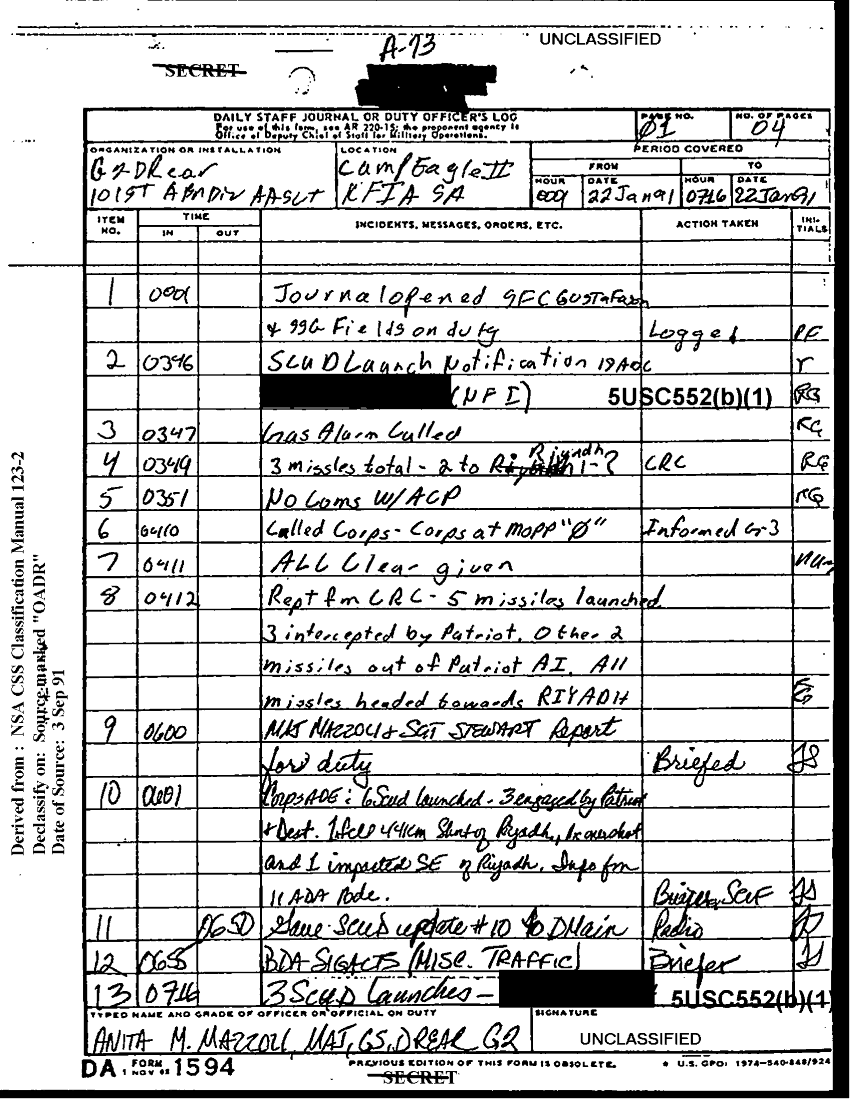 A-73 UNCLASSIFIED
SECRET
DAILY STAFF JOURNAL OR DUTY OFFICER'S LOG
For use of this form, see AR 220-15; the proponent agency is
Office of Deputy Chief of Staff for Military Operations.
PAGE NO.
01
NO. OF PAGES
04
ORGANIZATION OR INSTALLATION
G2 DRear
101ST ABN DIV AASLT
LOCATION
Camp Eagle II
KFIA SA
PERIOD COVERED
FROM TO
HOUR DATE HOUR DATE
0001 22 Jan 91 0716 22 Jan 91
ITEM NO. TIME IN OUT INCIDENTS, MESSAGES, ORDERS, ETC. ACTION TAKEN INI-TIALS
1 0001 Journal opened SFC Gustafson
& 99G Fields on duty Logged
2 0346 SCUD Launch Notification
(NFI) 5USC552(b)(1) RG
3 0347 Gas Alarm Called RG
4 0349 3 missles total - 2 to Riyadh 1-? CRC RG
5 0351 No Coms W/ACP RG
6 0410 Called Corps - Corps at MOPP "0" Informed G-3
7 0411 ALL Clear given
8 0412 Rept fm CRC - 5 missiles launched
3 intercepted by Patriot. Other 2
missiles out of Patriot AI. All
missles headed towards RIYADH
9 0600 MAJ MAZZOLI & SGT STEWART Report
for duty Briefed JS
10 0601 Corps ADE: 6 Scud launched - 3 engaged by Patriot
& Dest. 1 fell 441km Short of Riyadh, 1x overshot
and 1 impacted SE of Riyadh. Info fm
11 ADA Bde. JS
11 0650 Gave SCUD update #10 to DMain Radio JS
12 0655 BDA-SIGACTS (MISC. TRAFFIC) Briefer JS
13 0716 3 SCUD Launches - 5USC552(b)(1)
TYPED NAME AND GRADE OF OFFICER OR OFFICIAL ON DUTY
ANITA M. MAZZOLI, MAJ, GS, DREAR G2
SIGNATURE
UNCLASSIFIED
DA FORM 1 NOV 62 1594
PREVIOUS EDITION OF THIS FORM IS OBSOLETE.
* U.S. GPO: 1974-540-848/924
SECRET
Derived from : NSA CSS Classification Manual 123-2
Declassify on: Source marked "OADR"
Date of Source: 3 Sep 91